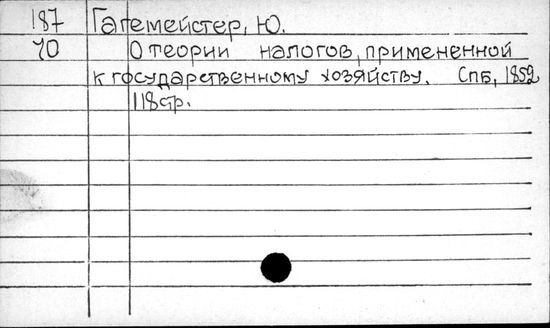 187 Гагемейстер, Ю.
40 О теории налогов, примененной
к государственному хозяйству. Спб, 1852
118стр.